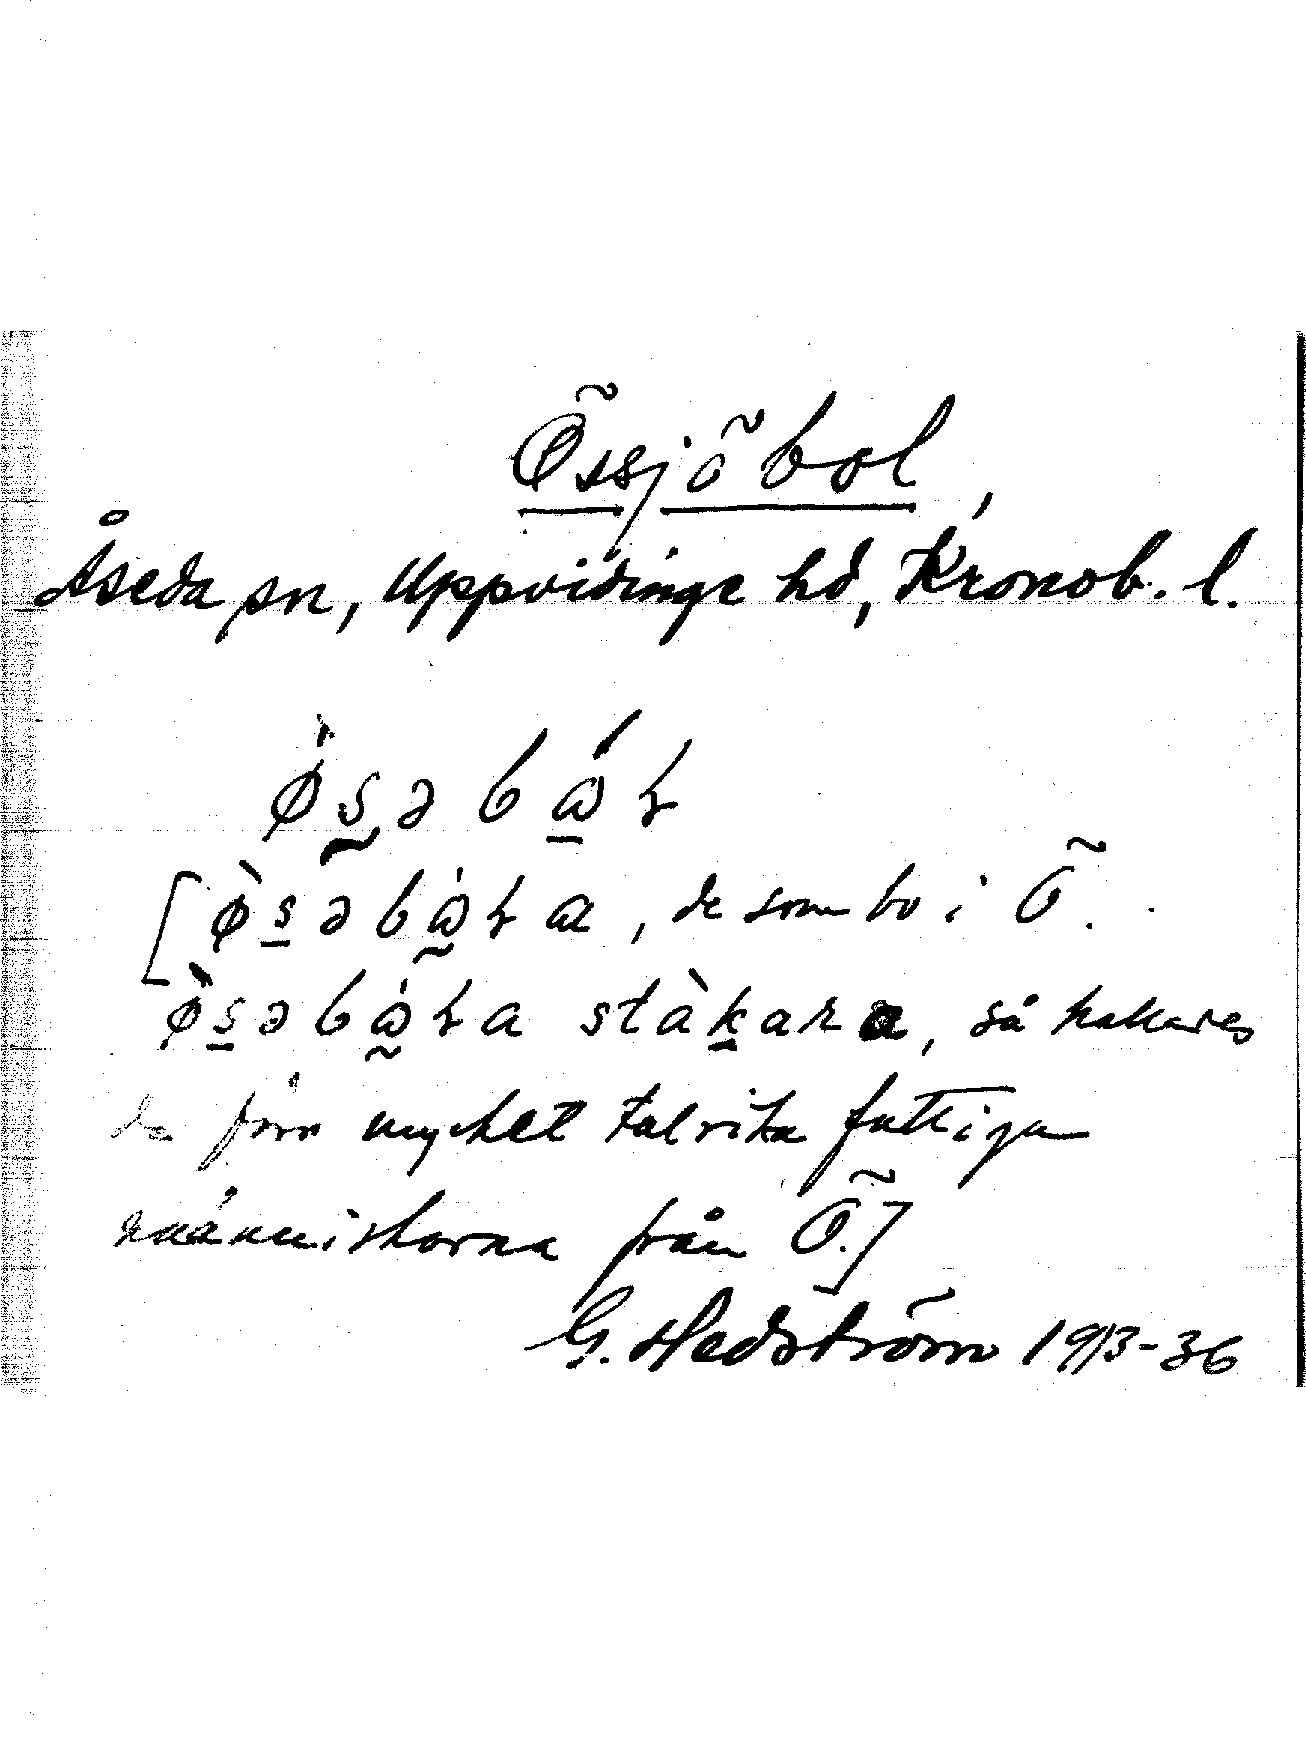 Össjöbol,
Åseda sn, Uppvidinge hd, Kronob. l.
ø̀s̰əbɷ́ɫ
[ø̀s̲əbɷ̀ɫa, de som bo i Ö.
ø̀s̲əbɷ̀ɫa stàk̲ara, så kallades
de förr mycket talrika fattiga
människorna från Ö.]
G. Hedström 1913-36